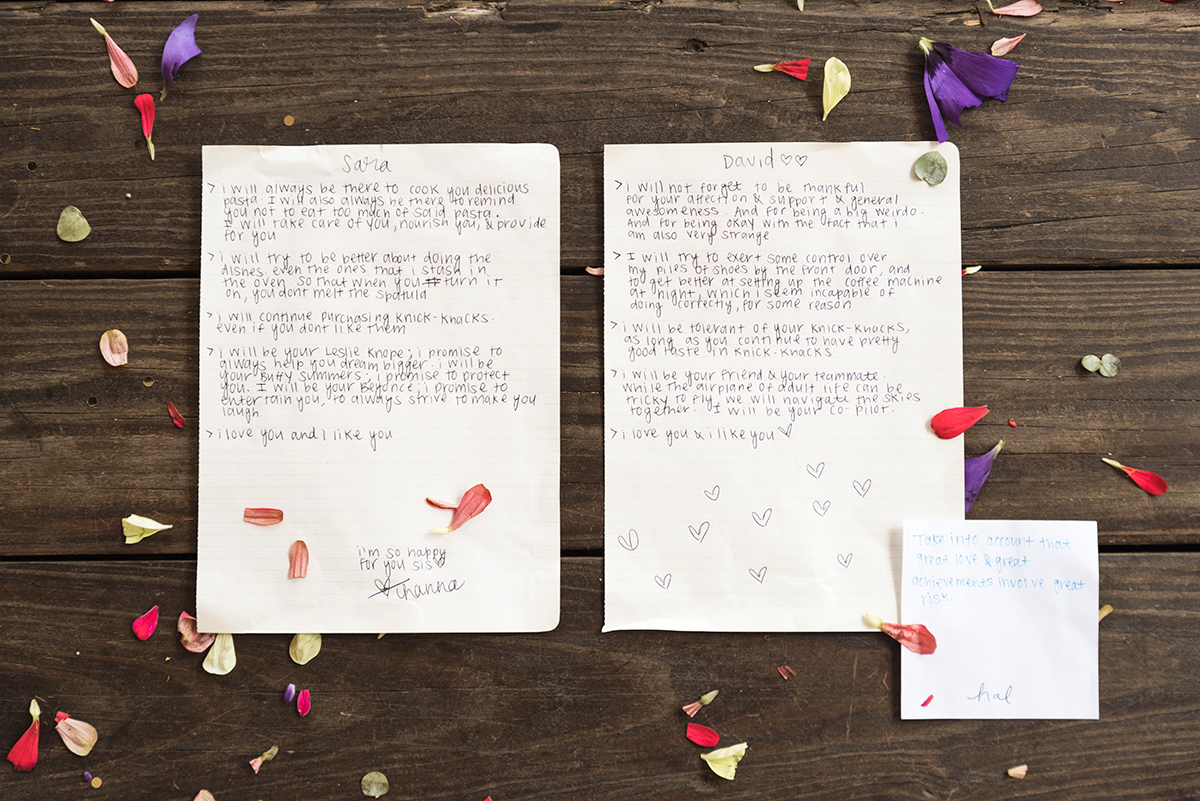 Sara
> i will always be there to cook you delicious
pasta. I will also always be there to remind
you not to eat too much of said pasta.
I will take care of you, nourish you, & provide
for you
> i will try to be better about doing the
dishes, even the ones that i stash in
the oven so that when you turn it
on, you dont melt the spatula
> i will continue purchasing knick-knacks.
even if you dont like them
> i will be your Leslie Knope; i promise to
always help you dream bigger. i will be
your Buffy Summers; i promise to protect
you. I will be your Beyonce; i promise to
entertain you, to always strive to make you
laugh
> i love you and I like you
i'm so happy
for you sis
David ♡♡
> i will not forget to be thankful
for your affection & support & general
awesomeness. And for being a big weirdo.
And for being okay with the fact that i
am also very strange
> I will try to exert some control over
my piles of shoes by the front door, and
to get better at setting up the coffee machine
at night, which i seem incapable of
doing correctly, for some reason
> i will be tolerant of your knick-knacks,
as long as you continue to have pretty
good taste in knick-knacks
> i will be your friend & your teammate.
While the airplane of adult life can be
tricky to fly, we will navigate the skies
together. I will be your co-pilot.
> i love you & i like you ♡
Take into account that
great love & great
achievements involve great
risk.
hal